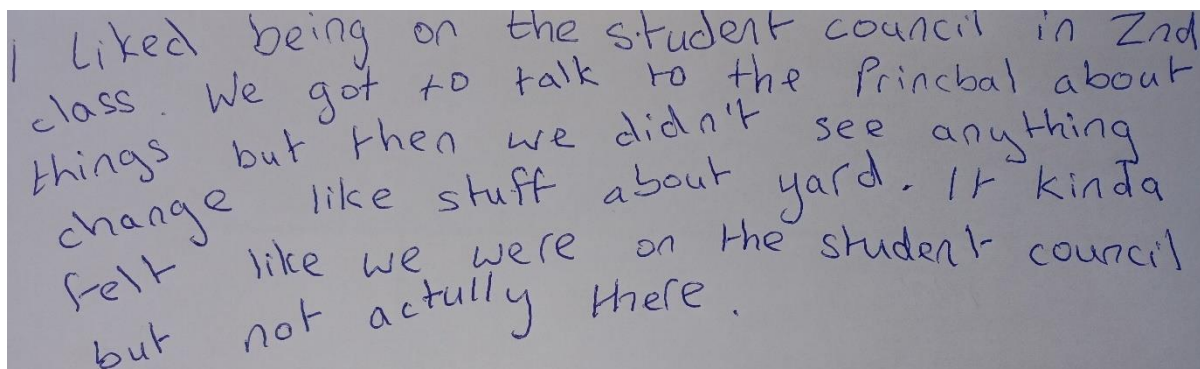 I Liked being on the student council in 2nd
class. We got to talk to the Princbal about
things but then we didn't see anything
change like stuff about yard. It kinda
felt like we were on the student council
but not actully there.